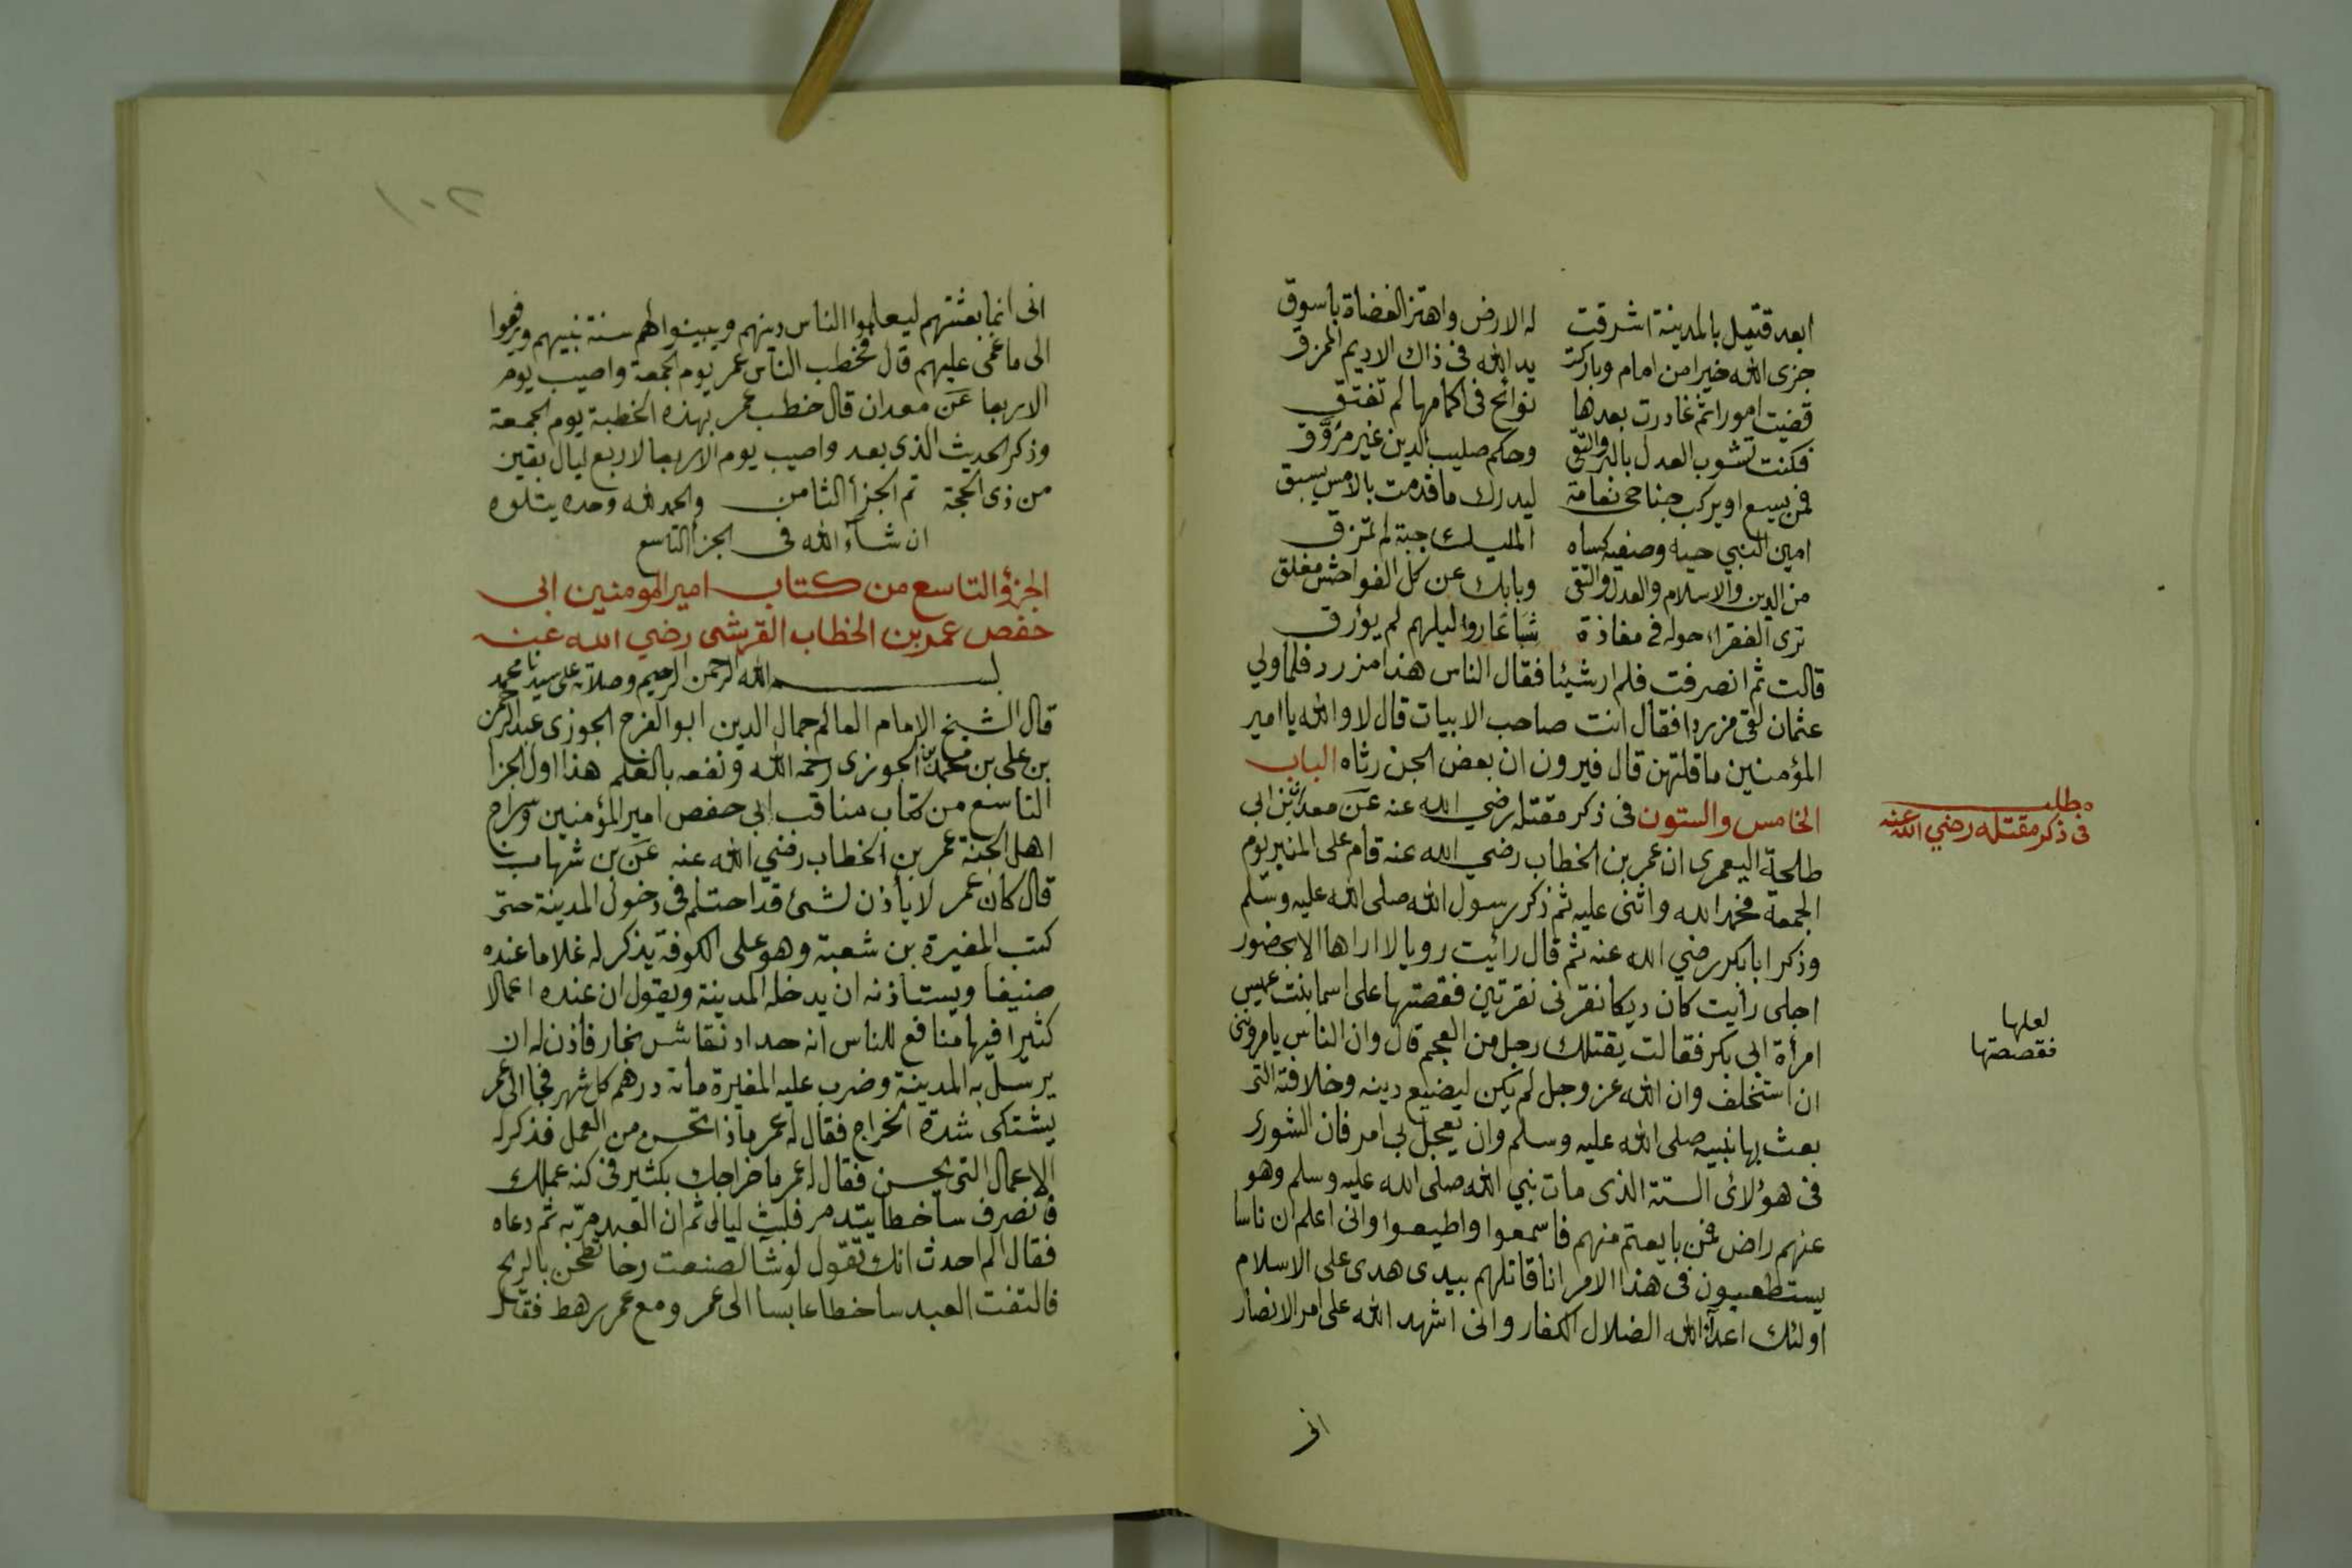 ابعد قتيل بالمدينة اشرقت له الارض واهتز الغضاة باسوق
جزى الله خيرا من امام وباركت يد الله فى ذاك الاديم الممزق
قضيت امورا ثم غادرت بعدها نوائح فى اكمامها لم تفتق
فكنت تشوب العدل بالبر والتقى وحكم صليب الدين غير مروق
فمن يسع او يركب جناحى نعامة ليدرك ما قدمت بالامس يسبق
امين النبي حبه وصفيه كساه المليك جبة لم تمزق
من الدين والاسلام والعدل والتقى وبابك عن كل الفواحش مغلق
ترى الفقراء حوله فى مفاذة شباعا روا ليلهم لم يؤرق
قالت ثم انصرفت فلم ار شيئا فقال الناس هذا مزرد فلما ولي
عثمان لقى مزردا فقال انت صاحب الابيات قال لا والله يا امير
المؤمنين ما قلتهن قال فيرون ان بعض الجن رثاه الباب
الخامس والستون فى ذكر مقتله رضي الله عنه عن معدان بن ابى
طلحة اليعمرى ان عمر بن الخطاب رضي الله عنه قام على المنبر يوم
الجمعة فحمد الله واثنى عليه ثم ذكر رسول الله صلى الله عليه وسلم
وذكر ابا بكر رضي الله عنه ثم قال رائيت رويا لا اراها الا بحضور
اجلى رايت كان ديكا نقرنى نقرتين فقصتها على اسما بنت عميس
امرأة ابى بكر فقالت يقتلك رجل من العجم قال وان الناس يامرونى
ان استخلف وان الله عز وجل لم يكن ليضيع دينه وخلافته التى
بعث بها نبيه صلى الله عليه وسلم وان يعجل بى امر فان الشورى
فى هؤلائ الستة الذى مات نبي الله صلى الله عليه وسلم وهو
عنهم راض فمن بايعتم منهم فاسمعوا واطيعوا وانى اعلم ان ناسا
يستطعيون فى هذا الامر انا قاتلهم بيدى هدى على الاسلام
اولئك اعداء الله الضلال الكفار وانى اشهد الله على امر الانصار
انى
مطلب
فى ذكر مقتله رضي الله عنه
لعلها
فقصصتها
٢٠١
انى انما بعثتهم ليعلموا الناس دينهم ويبينوا لهم سنة نبيهم ويرفعوا
الى ما عمى عليهم قال فخطب الناس عمر يوم الجمعة واصيب يوم
الاربعا عن معدان قال خطب عمر بهذه الخطبة يوم الجمعة
وذكر الحديث الذى بعد واصيب يوم الاربعا لاربع ليال بقين
من ذى الحجة تم الجزأ الثامن والحمد لله وحده يتلوه
ان شاء الله فى الجزأ التاسع
الجزؤ التاسع من كتاب امير المومنين ابى
حفص عمر بن الخطاب القرشى رضي الله عنه
بسم الله الرحمن الرحيم وصلاته على سيدنا محمد
قال الشيخ الامام العالم جمال الدين ابو الفرج الجوزى عبد الرحمن
بن على بن محمد بن الجوزى رحمه الله ونفعه بالعلم هذا اول الجزا
التاسع من كتاب مناقب ابى حفص امير المؤمنين وسراج
اهل الجنة عمر بن الخطاب رضي الله عنه عن بن شهاب
قال كان عمر لا يأذن لشئ قد احتلم فى دخول المدينة حتى
كتب المغيرة بن شعبة وهو على الكوفة يذكر له غلاما عنده
صنيفا ويستاذنه ان يدخله المدينة ويقول ان عنده اعمالا
كثيرا فيها منافع للناس انه حداد نقاش نجار فاذن له ان
يرسل به المدينة وضرب عليه المغيرة مائة درهم كل شهر فجا الى عمر
يشتكى شدة الخراج فقال له عمر ماذا تحسن من العمل فذكر له
الاعمال التى يحسن فقال له عمر ما خراجك بكثير فى كنه عملك
فانصرف ساخطا يتدمر فلبث ليالى ثم ان العبد مر به ثم دعاه
فقال الم احدث انك تقول لو شا لصنعت رحا تطحن بالريح
فالتفت العبد ساخطا عابسا الى عمر ومع عمر رهط فقال